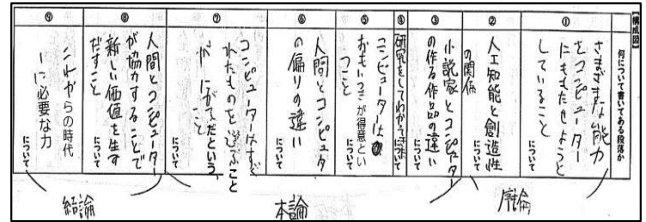 【構成図】
何について書いてある段落か
①
さまざまな能力
をコンピューター
にもたせようと
していること
について
②
人工知能と創造性
の関係
について
③
小説家とコンピューター
の作る作品の違い
について
④
研究をしてわかったこと
について
⑤
コンピューターは
おもいつきが得意とい
うこと
について
⑥
人間とコンピュータ
の偏りの違い
について
⑦
コンピューターはすぐ
れたものを選ぶこと
が にがてだという
こと
について
⑧
人間とコンピューター
が協力することで
新しい価値を生み
だすこと
について
⑨
これからの時代
に必要な力
について
序論
本論
結論